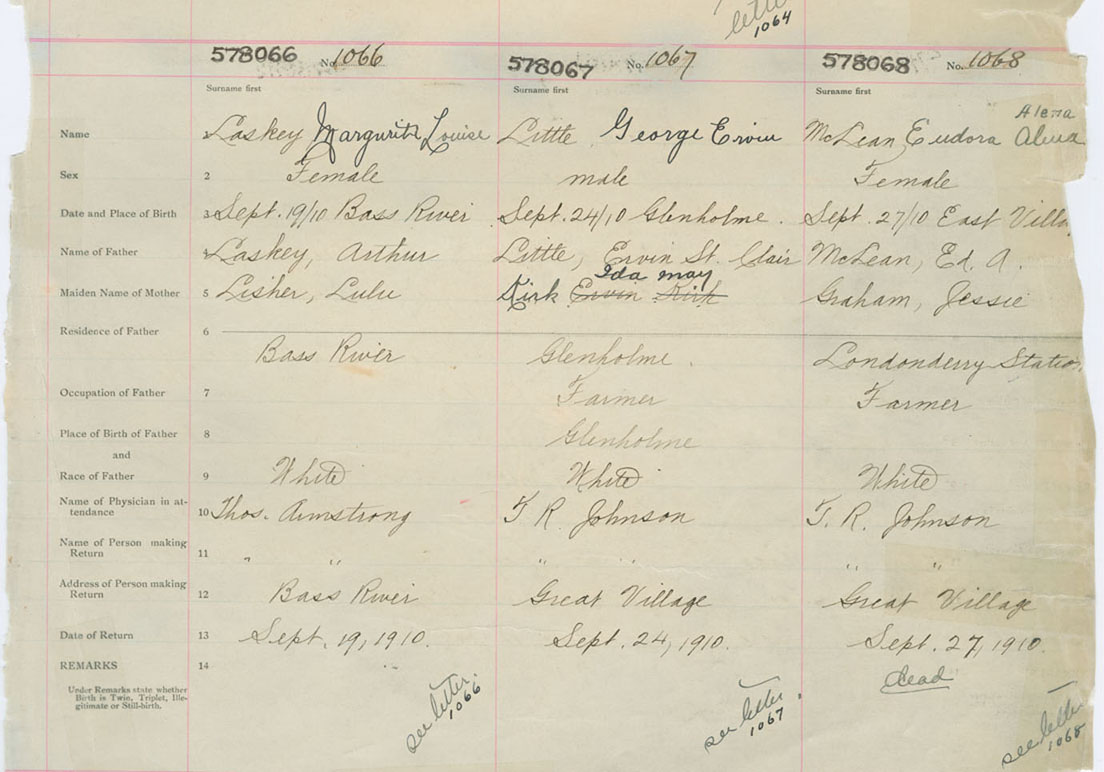 letter
1064
578066 No. 1066 578067 No. 1067 578068 No. 1068
Surname first Surname first Surname first
Alena
Name 1 Laskey Margurite Louise Little George Ervin McLean Eudora Alena
Sex 2 Female male Female
Date and Place of Birth 3 Sept. 19/10 Bass River Sept. 24/10 Glenholme. Sept. 27/10 East Villa
Name of Father 4 Laskey, Arthur Little, Ervin St. Clair McLean, Ed. A.
Ida may
Maiden Name of Mother 5 Lisher, Lulu Kirk Ervin Kirk Graham, Jessie
Residence of Father 6
Bass River Glenholme. Londonderry Station
Occupation of Father 7 Farmer Farmer
Place of Birth of Father 8 Glenholme
and
Race of Father 9 White White White
Name of Physician in at-
tendance 10 Thos. Armstrong T R. Johnson T. R. Johnson
Name of Person making
Return 11 " " " " " "
Address of Person making
Return 12 Bass River Great Village Great Village
Date of Return 13 Sept. 19, 1910. Sept. 24, 1910. Sept. 27, 1910.
REMARKS 14 dead
Under Remarks state whether
Birth is Twin, Triplet, Ille-
gitimate or Still-birth.
see letter.
1066
see letter.
1067
see letter
1068